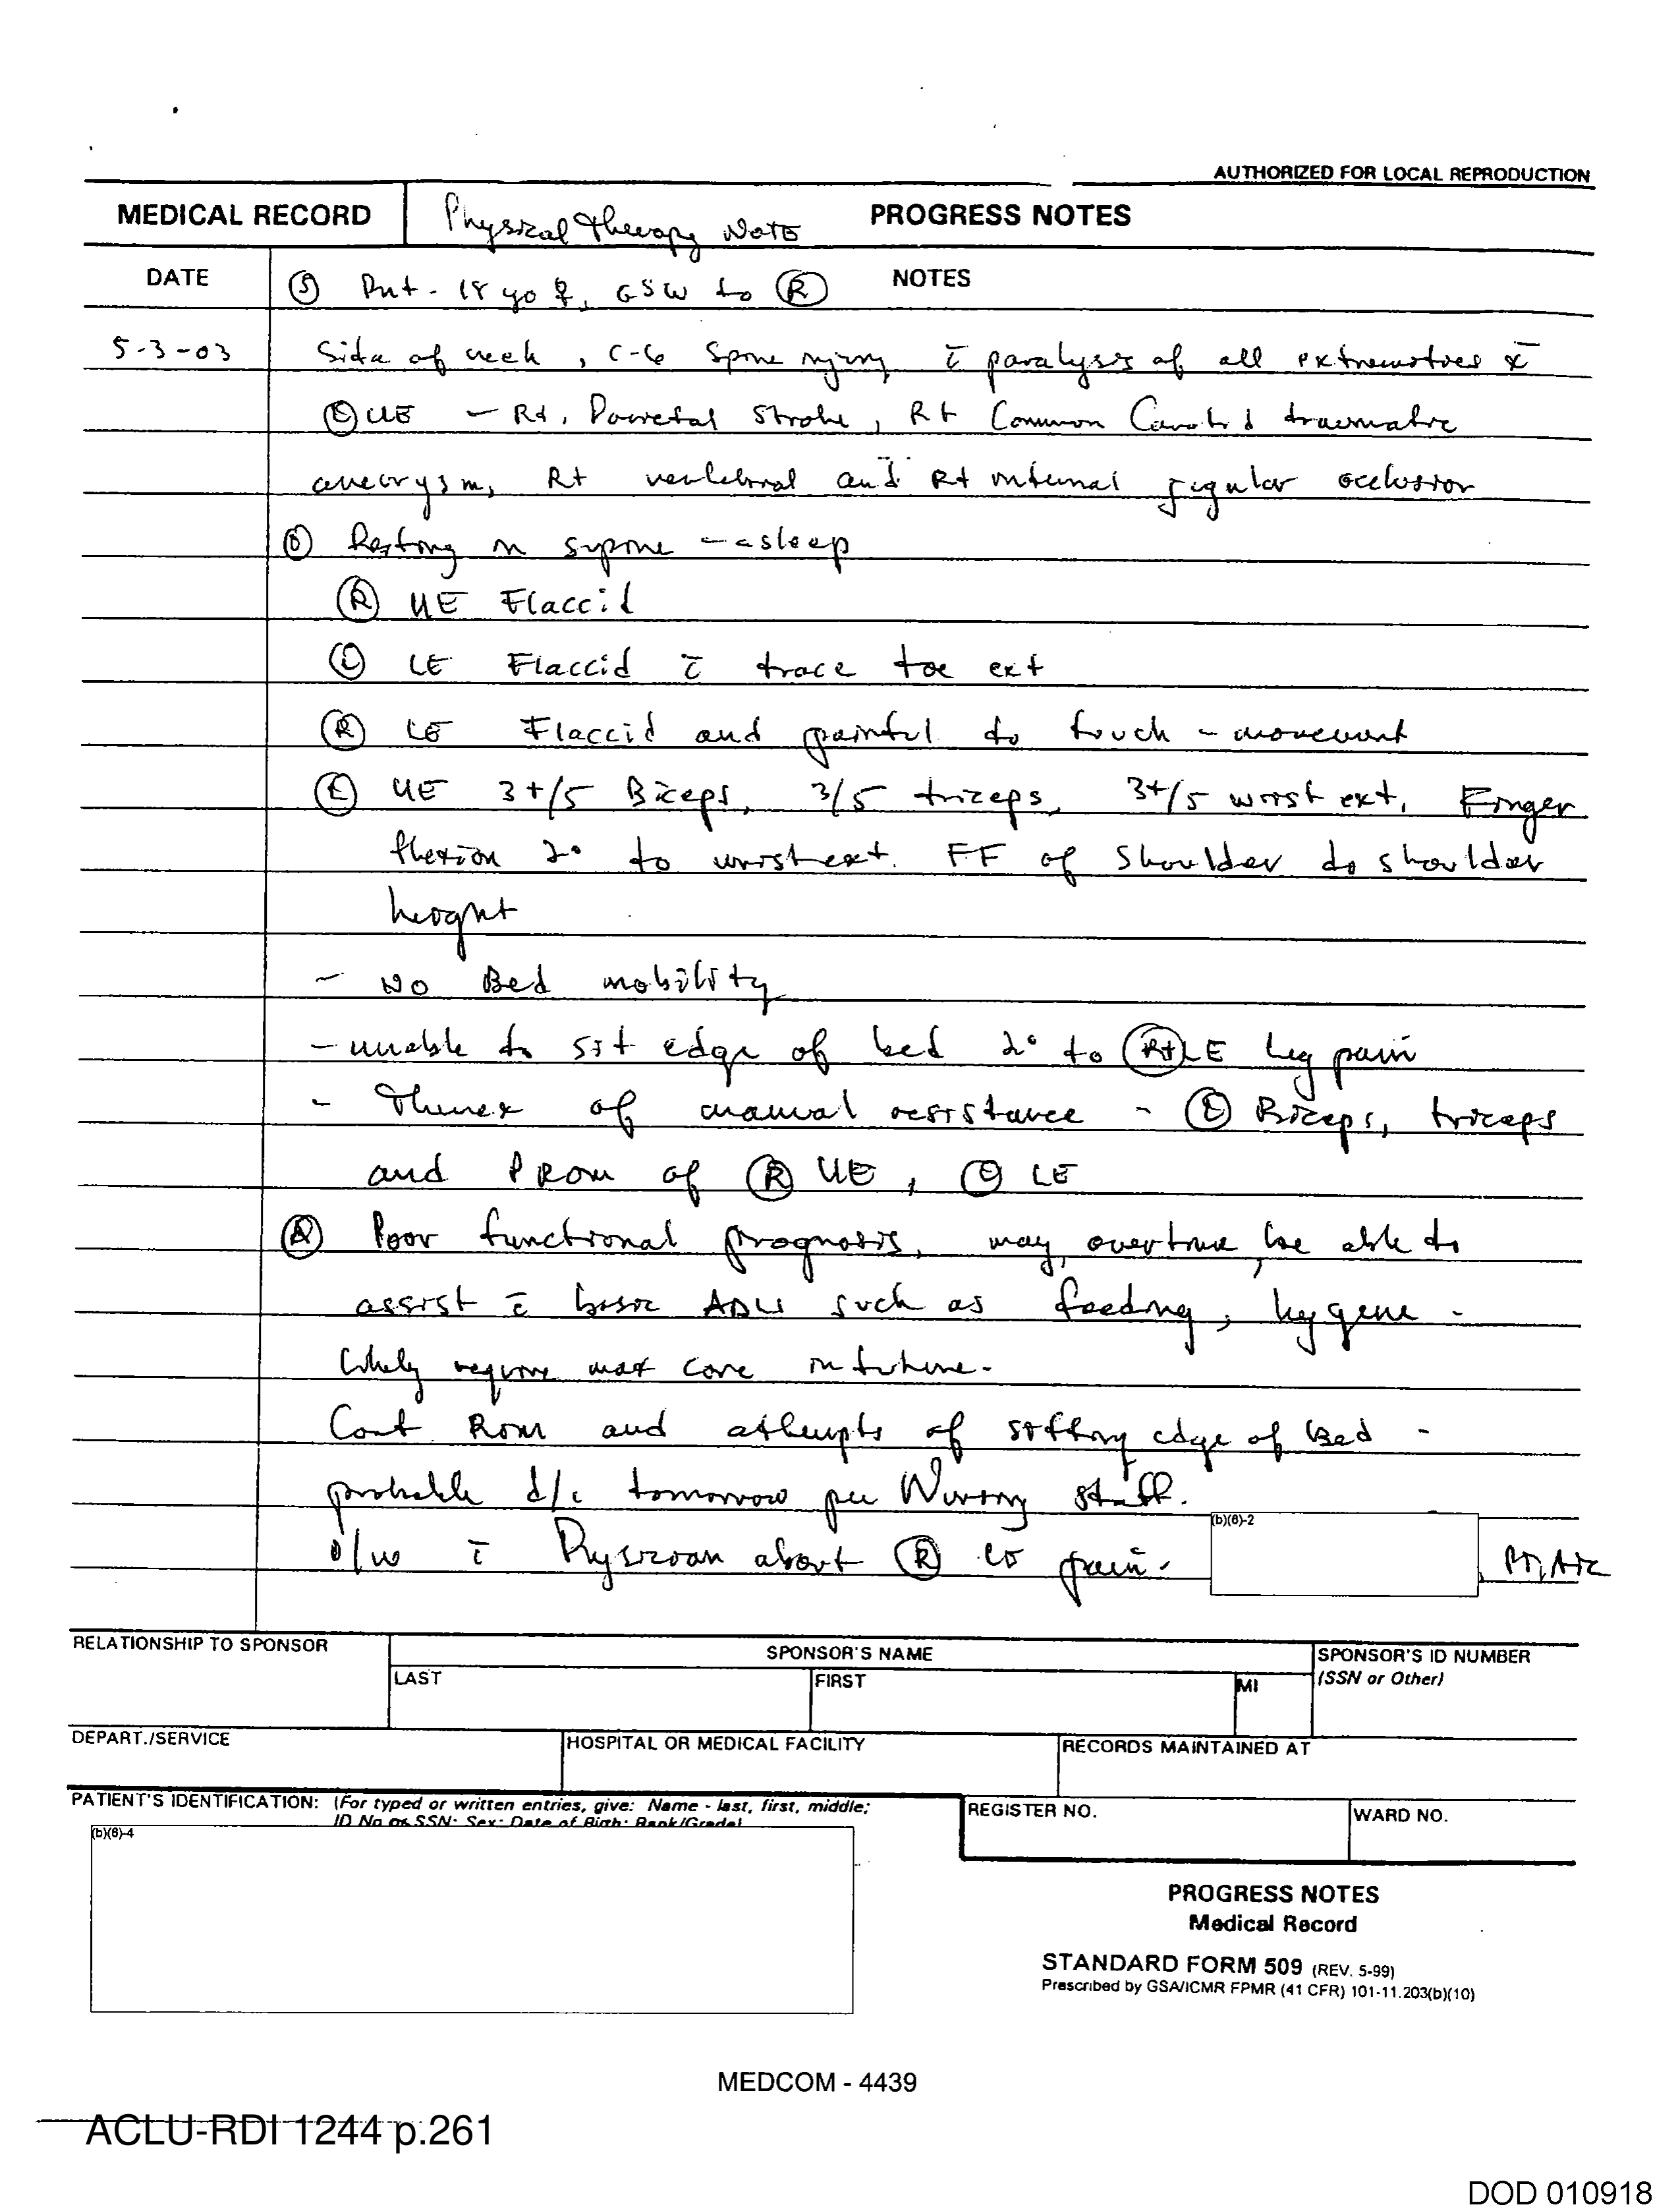 AUTHORIZED FOR LOCAL REPRODUCTION
MEDICAL RECORD Physical Therapy Note PROGRESS NOTES
DATE NOTES
Ⓢ Pnt - 18 yo ♀, GSW to Ⓡ
5-3-03 Side of neck, C-6 Spine injury c̄ paralysis of all extremities x̄
Ⓛ UE - Rt. Parietal Stroke, Rt Common Carotid traumatic
aneurysm, Rt vertebral and Rt internal jugular occlusion
Ⓞ Resting in supine - asleep
Ⓡ UE Flaccid
Ⓛ LE Flaccid c̄ trace toe ext
Ⓡ LE Flaccid and painful to touch - movement
Ⓛ UE 3+/5 Biceps, 3/5 triceps, 3+/5 wrist ext, Finger
flexion 2° to wrist ext. FF of Shoulder to shoulder
height
- No Bed mobility
- unable to sit edge of bed 2° to Rt LE Leg pain
- Therex of manual resistance - Ⓛ Biceps, triceps
and PROM of Ⓡ UE, Ⓛ LE
Ⓐ Poor functional prognosis, may, overtime, be able to
assist c̄ basic ADLs such as feeding, hygene -
likely require max care in future.
Cont ROM and attempts of sitting edge of Bed -
probable d/c tomorrow per Nursing staff.
D/w c̄ Physician about Ⓡ LE pain. (b)(6)-2 , PT, ATC
RELATIONSHIP TO SPONSOR SPONSOR'S NAME SPONSOR'S ID NUMBER
LAST FIRST MI (SSN or Other)
DEPART./SERVICE HOSPITAL OR MEDICAL FACILITY RECORDS MAINTAINED AT
PATIENT'S IDENTIFICATION: (For typed or written entries, give: Name - last, first, middle; REGISTER NO. WARD NO.
ID No or SSN; Sex; Date of Birth; Rank/Grade)
(b)(6)-4
PROGRESS NOTES
Medical Record
STANDARD FORM 509 (REV. 5-99)
Prescribed by GSA/ICMR FPMR (41 CFR) 101-11.203(b)(10)
MEDCOM - 4439
ACLU-RDI 1244 p.261
DOD 010918